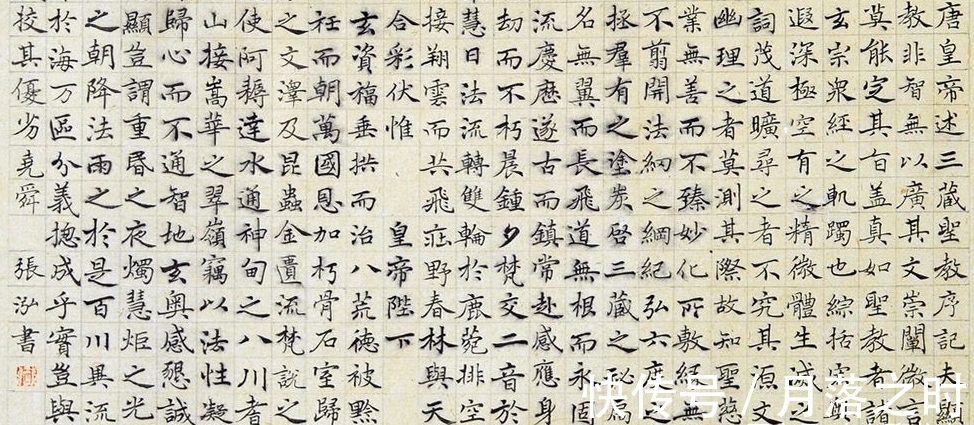 唐皇帝述三藏聖教序記夫顯
教非智無以廣其文崇闡微言
莫能定其旨盖真如聖教者諸
玄宗眾經之軌躅也綜括
遐深極空有之精微體生滅
詞茂道曠尋之者不究其源文
幽理之者莫測其際故知聖慈
業無善而不臻妙化所敷緣無
不剪開法網之綱紀弘六度之
拯羣有之塗炭啓三藏之
名無翼而長飛道無根而永固
流慶歷遂古而鎮常赴感應身
劫而不朽晨鍾夕梵交二音於
慧日法流轉雙輪於鹿菀排空
接翔雲而共飛莊野春林與天
合彩伏惟 皇帝陛下
玄資福垂拱而治八荒德被黔
衽而朝萬國恩加朽骨石室歸
之文澤及昆蟲金匱流梵說之
使阿耨達水通神甸之八川耆
山接嵩華之翠嶺竊以法性凝
歸心而不通智地玄奧感懇誠
顯豈謂重昏之夜燭慧炬之光
之朝降法雨之於是百川異流
於海万區分義揔成乎實豈與
挍其優劣堯舜 張泓書
快传号/月落之时